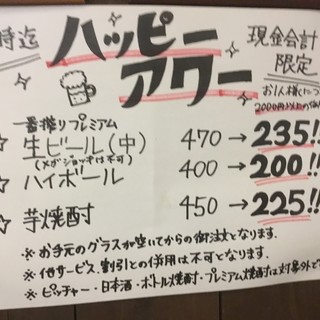 時迄
ハッピー
アワー
現金会計
限定
お1人様につ
2000円以上の
一番搾りプレミアム
生ビール(中) 470→235!!
(メガジョッキは不可)
ハイボール 400→200!!
芋焼酎 450→225!!
※お手元のグラスが空いてからの御注文となります。
※他サービス、割引との併用は不可となります。
※ピッチャー・日本酒・ボトル焼酎・プレミアム焼酎は対象外と